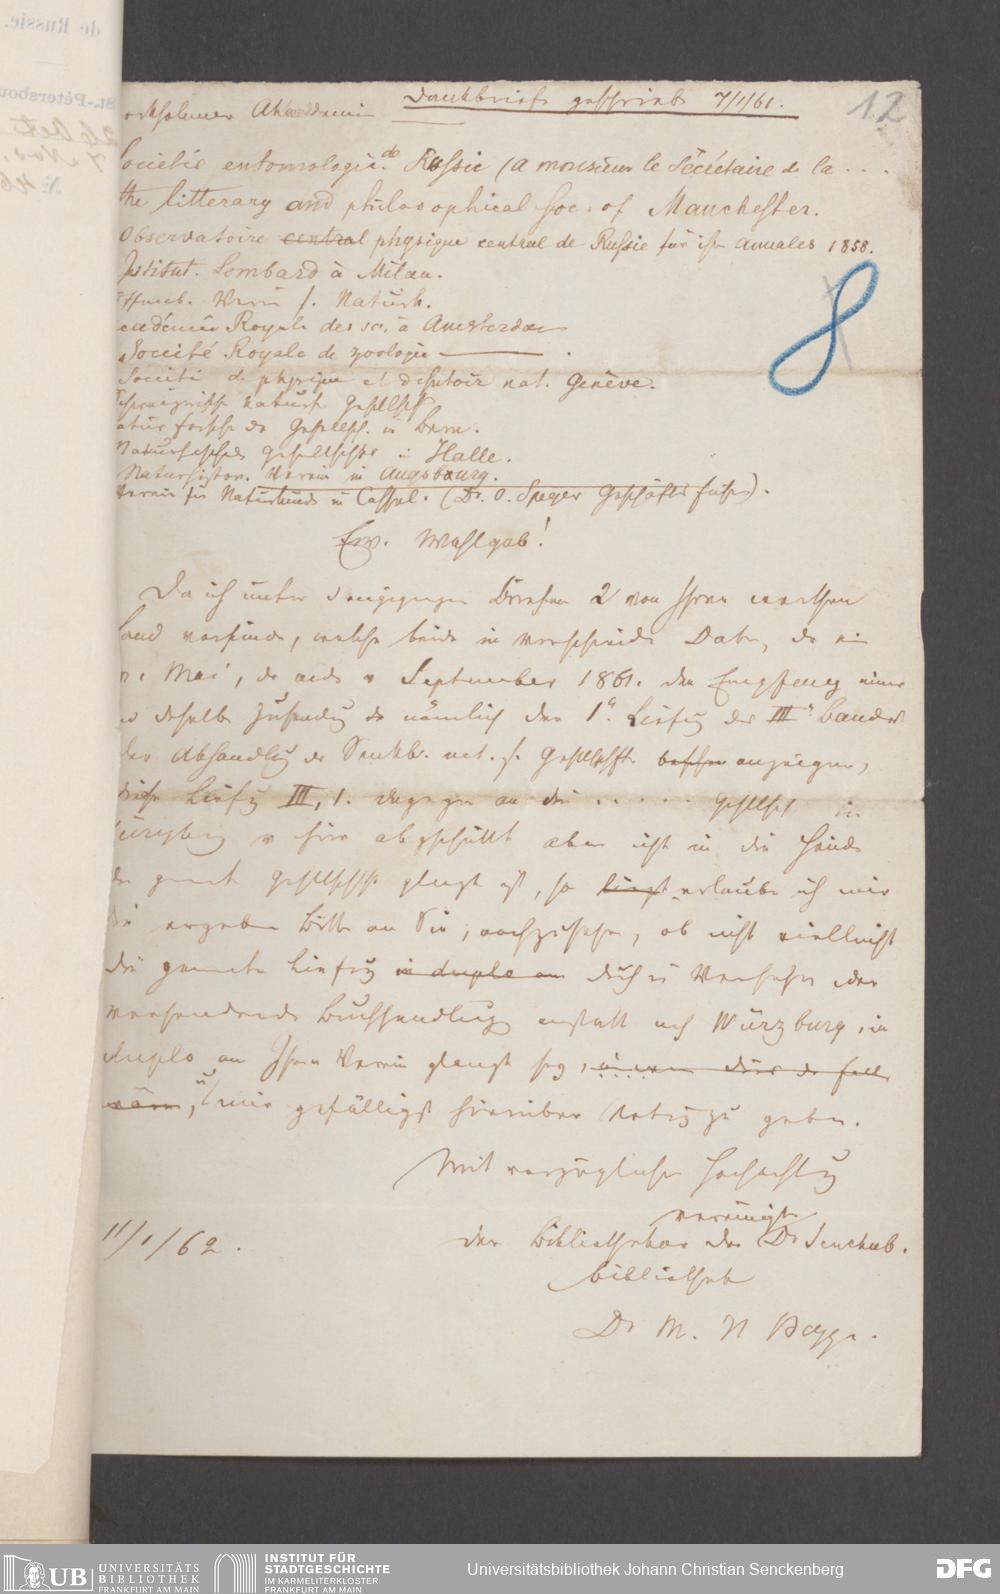 de Russie.
St.-Pétersbou
Dankbriefe geschrieb 7/1/61.
12
ockholmer Akademie
Societé entomologiq. de Russie (a monsieur le Sécrétaire de la . . .
the litterary and philosophical Soc. of Manchester.
Observatoire central physique central de Russie für ihre annales 1858.
Institut. Lombard à Milan.
Verein f. Naturk.
cadémie Royale des sc. à Amsterdam
Société Royale de zoologie ———— .
Société de physique et d'histoire nat. Genève.
8
Schweizerische naturf. Gesellsch
atur forsche de Gesellsch. in Bern.
Naturforschde Gesellschaft in Halle.
Naturhistor. Verein in Augsbourg.
Verein für Naturkunde in Cassel. (Dr. O. Speyer Geschäftsführer).
Ew. Wohlgeb!
Da ich unter den Briefen 2 von Ihrer werthen
Hand vorfinde, welche beide in verschiede Daten, der ein
Mai, der ande v September 1861. den Empfang einer
u derselbe Zusendg de nämlich der 1t. Liefrg des III. Bandes
der Abhandlg der Senckb. nat. f. Gesellschft anzeigen,
diese Liefrg III, 1. dagegen an die . . . . . Gesellsch in
Würzbg v hier abgeschickt aber nicht in die Hände
der genannt Gesellschft gelangt ist, so liegt erlaube ich mir
die ergeben Bitte an Sie, nachzusehen, ob nicht vielleicht
die genannte Liefrg in duplo an durch ein Versehen der
versendende Buchhandlug anstatt nach Würzburg, in
duplo an Ihren Verein gelangt sey, in wenn dies der Fall
wäre, u mir gefälligst hierüber Notiz zu geben.
Mit vorzüglicher Hochachtg
vereinigte
11/1/62.
der Bibliothekar der Dr Senckenb.
bibliothek
Dr M.
UB UNIVERSITÄTS
BIBLIOTHEK
FRANKFURT AM MAIN
INSTITUT FÜR
STADTGESCHICHTE
IM KARMELITERKLOSTER
FRANKFURT AM MAIN
Universitätsbibliothek Johann Christian Senckenberg
DFG